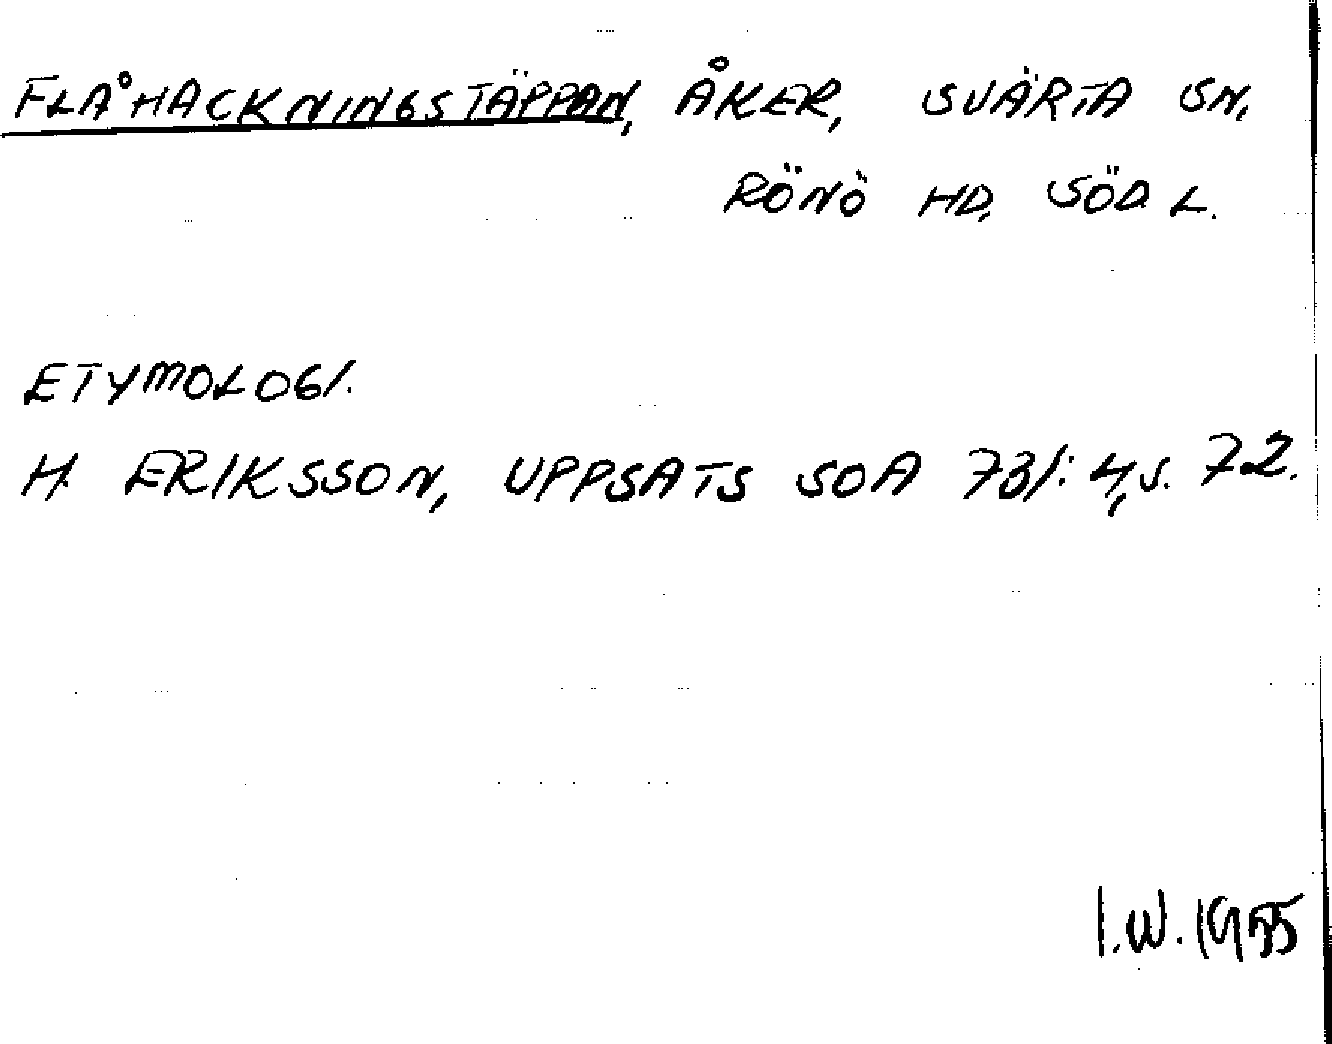 FLÅHACKNINGSTÄPPAN, ÅKER, SVÄRTA SN,
RÖNÖ HD, SÖD L.
ETYMOLOGI.
H. ERIKSSON, UPPSATS SOA 73/: 4, S. 72.
I.W. 1955